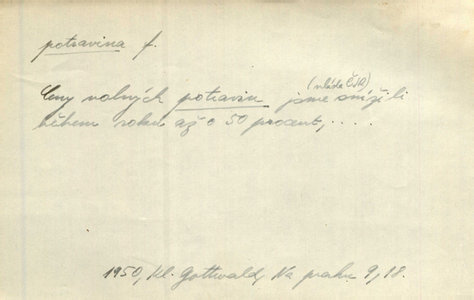 potravina f.
(vláda ČSR)
Ceny volných potravin jsme snížili
během roku až o 50 procent, ....
1950, Kl. Gottwald, Na prahu 9, 18.